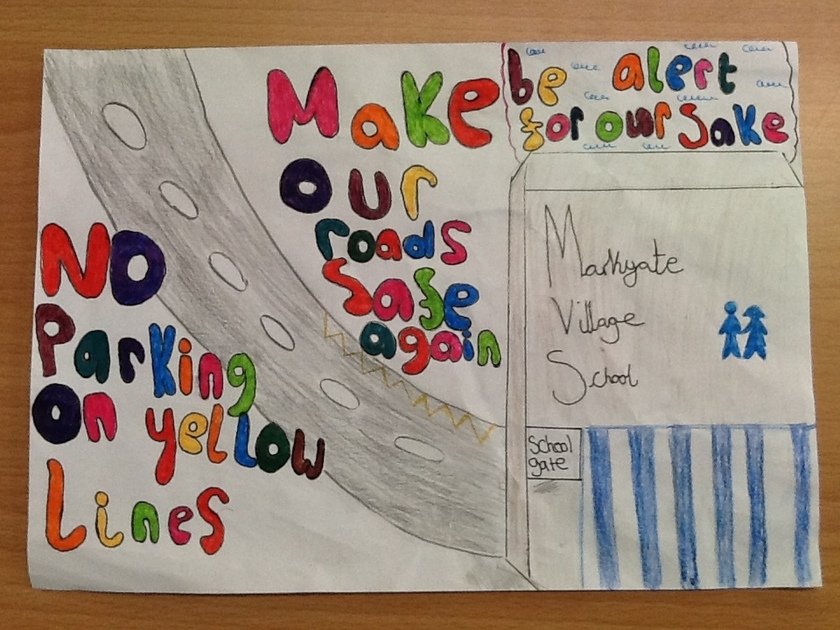 Make
our
roads
safe
again
be alert
for our sake
No
Parking
On yellow
Lines
Markyate
Village
School
School
gate